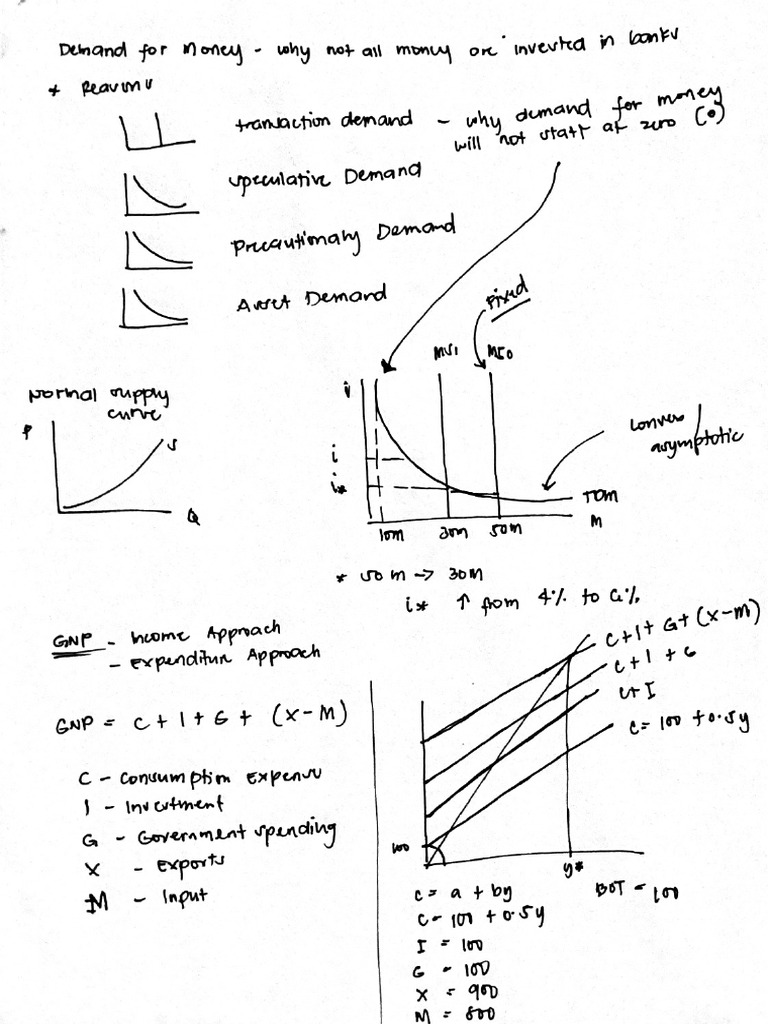 Demand for money - why not all money are invested in banks
* Reasons
transaction demand - why demand for money
will not start at zero (0)
speculative Demand
Precautionary Demand
Asset Demand
Fixed
MS1 MS0
Normal supply
curve
P
S
Q
i
i
i*
convex /
asymptotic
TDM
M
10m 30m 50m
* 50m → 30m
i* ↑ from 4% to 6%
GNP - Income Approach
- Expenditure Approach
GNP = C + I + G + (X-M)
C - Consumption Expense
I - Investment
G - Government spending
X - Exports
M - Input
C+I+G+(X-M)
C+I+G
C+I
C=100+0.5y
100
y*
BOT = 100
C = a + by
C = 100 + 0.5y
I = 100
G = 100
X = 900
M = 800